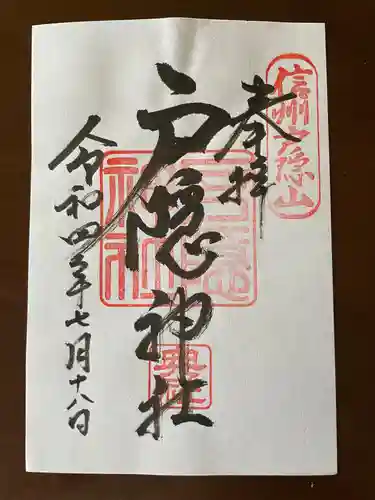 信州戸隠山
奉拝
戸隠神社
戸隠神社
奥社
令和四年七月十八日